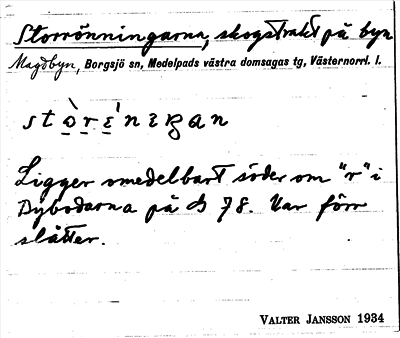 Storrönningarna, skogstrakt på byn
Magdbyn, Borgsjö sn, Medelpads västra domsagas tg, Västernorrl. l.
Ligger omedelbart söder om "r" i
Dybodarna på 78. Var förr
slåtter.
VALTER JANSSON 1934